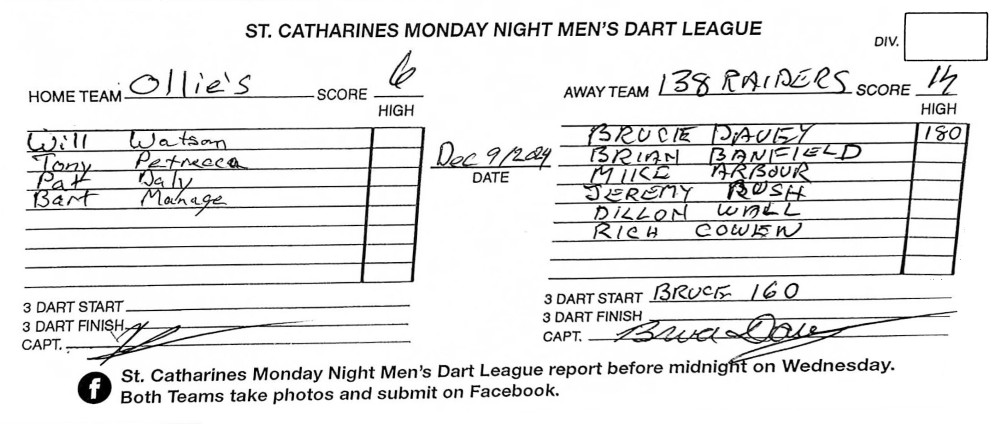 ST. CATHARINES MONDAY NIGHT MEN'S DART LEAGUE
DIV.
HOME TEAM Ollie's SCORE 6
HIGH
AWAY TEAM 138 RAIDERS SCORE 14
HIGH
Will Watson
Tony Petrecca
Pat Daly
Bart Manage
Dec 9/2024
DATE
BRUCE DAVEY 180
BRIAN BANFIELD
MIKE ARBOUR
JEREMY RUSH
DILLON WALL
RICH COWEN
3 DART START
3 DART FINISH
CAPT.
3 DART START BRUCE 160
3 DART FINISH
CAPT. Bruce Davey
St. Catharines Monday Night Men's Dart League report before midnight on Wednesday.
Both Teams take photos and submit on Facebook.